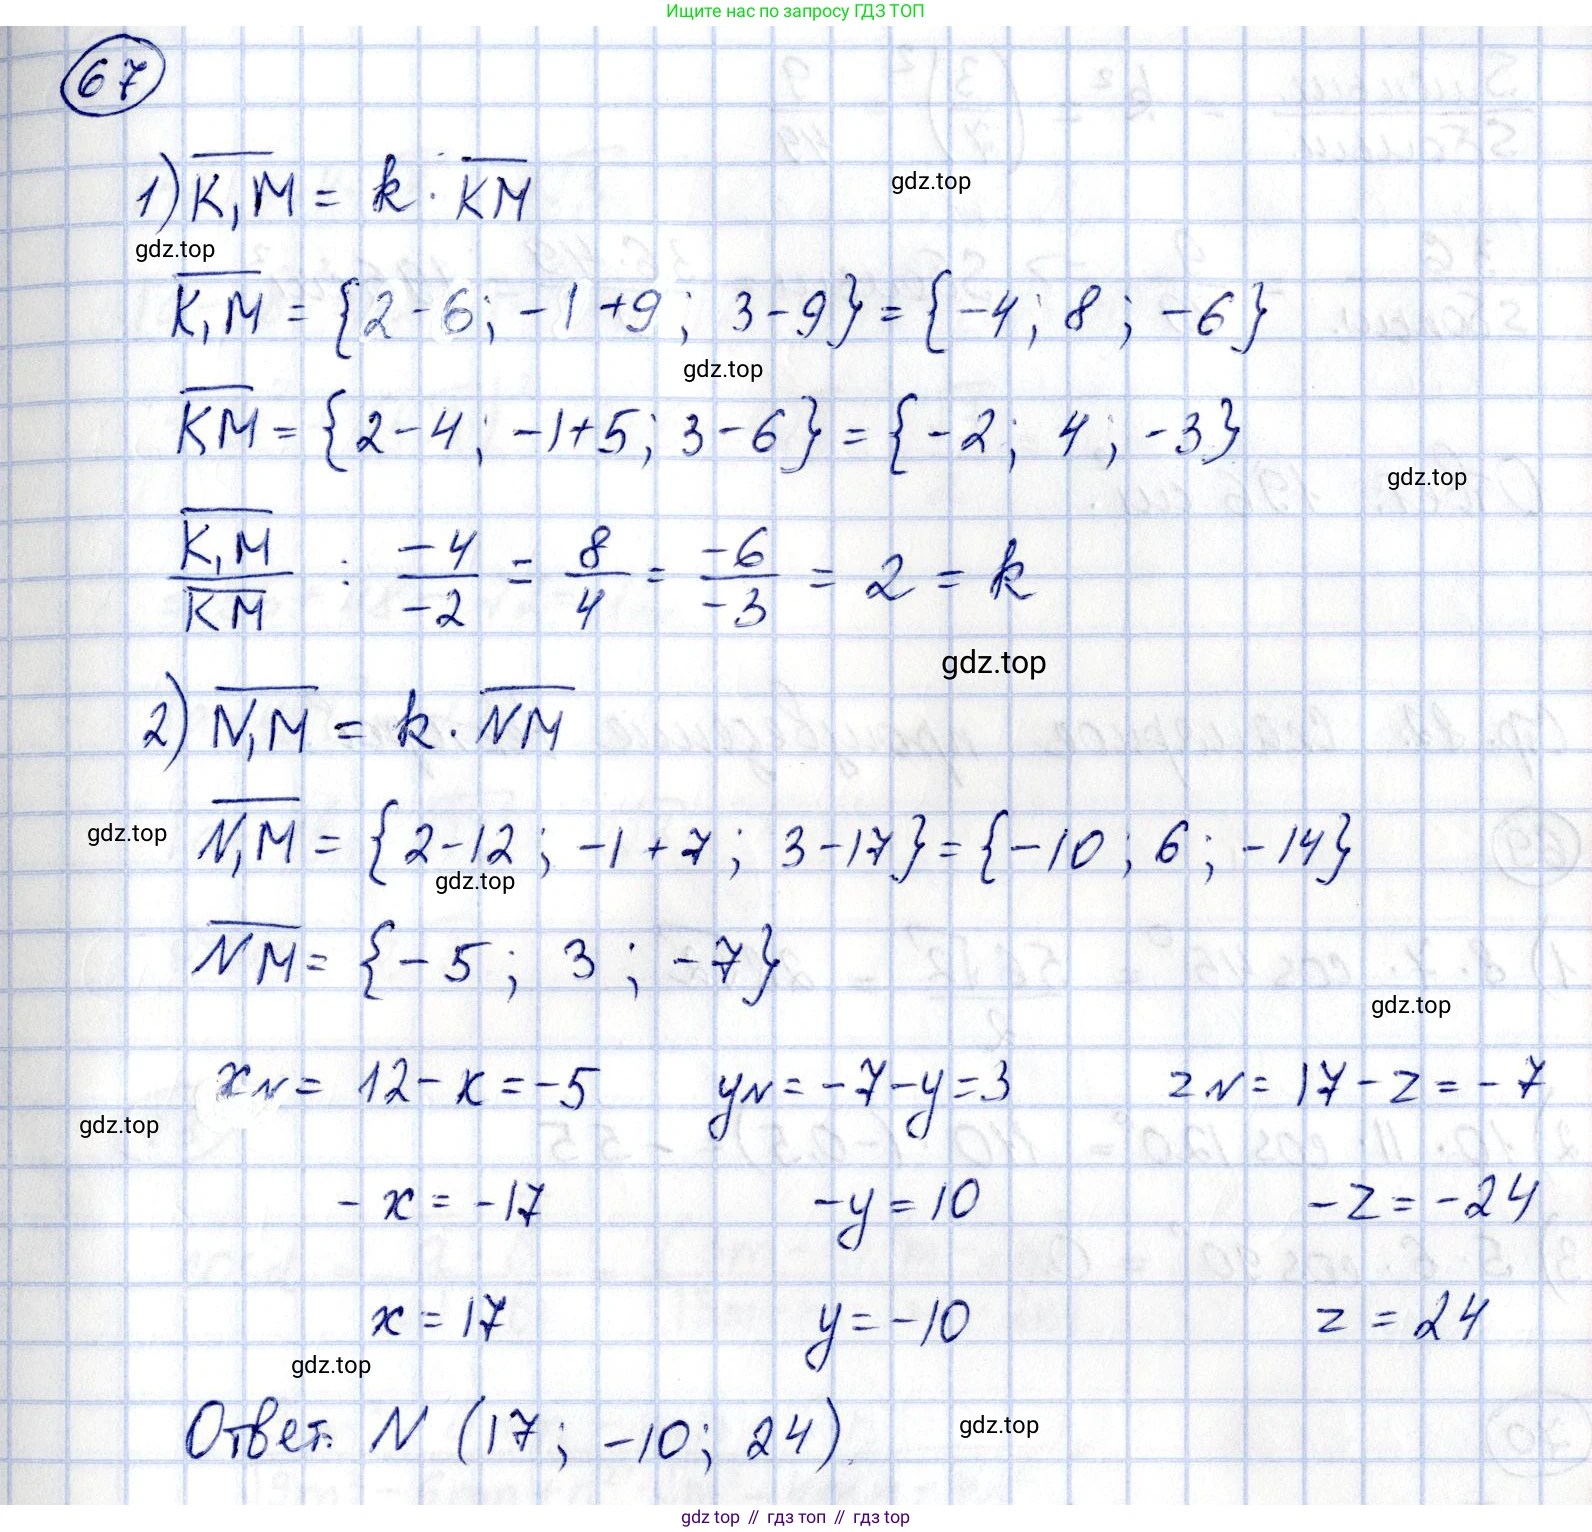 Ищите нас по запросу ГДЗ ТОП
67
1) K₁M = k · KM
gdz.top
gdz.top
K₁M = {2-6; -1+9; 3-9} = {-4; 8; -6}
gdz.top
KM = {2-4; -1+5; 3-6} = {-2; 4; -3}
gdz.top
K₁M/KM : -4/-2 = 8/4 = -6/-3 = 2 = k
gdz.top
2) N₁M = k · NM
gdz.top
N₁M = {2-12; -1+7; 3-17} = {-10; 6; -14}
gdz.top
NM = {-5; 3; -7}
gdz.top
xN = 12-x = -5 yN = -7-y = 3 zN = 17-z = -7
gdz.top
-x = -17 -y = 10 -z = -24
x = 17 y = -10 z = 24
gdz.top
Ответ: N (17; -10; 24).
gdz.top
gdz top // гдз топ // gdz top